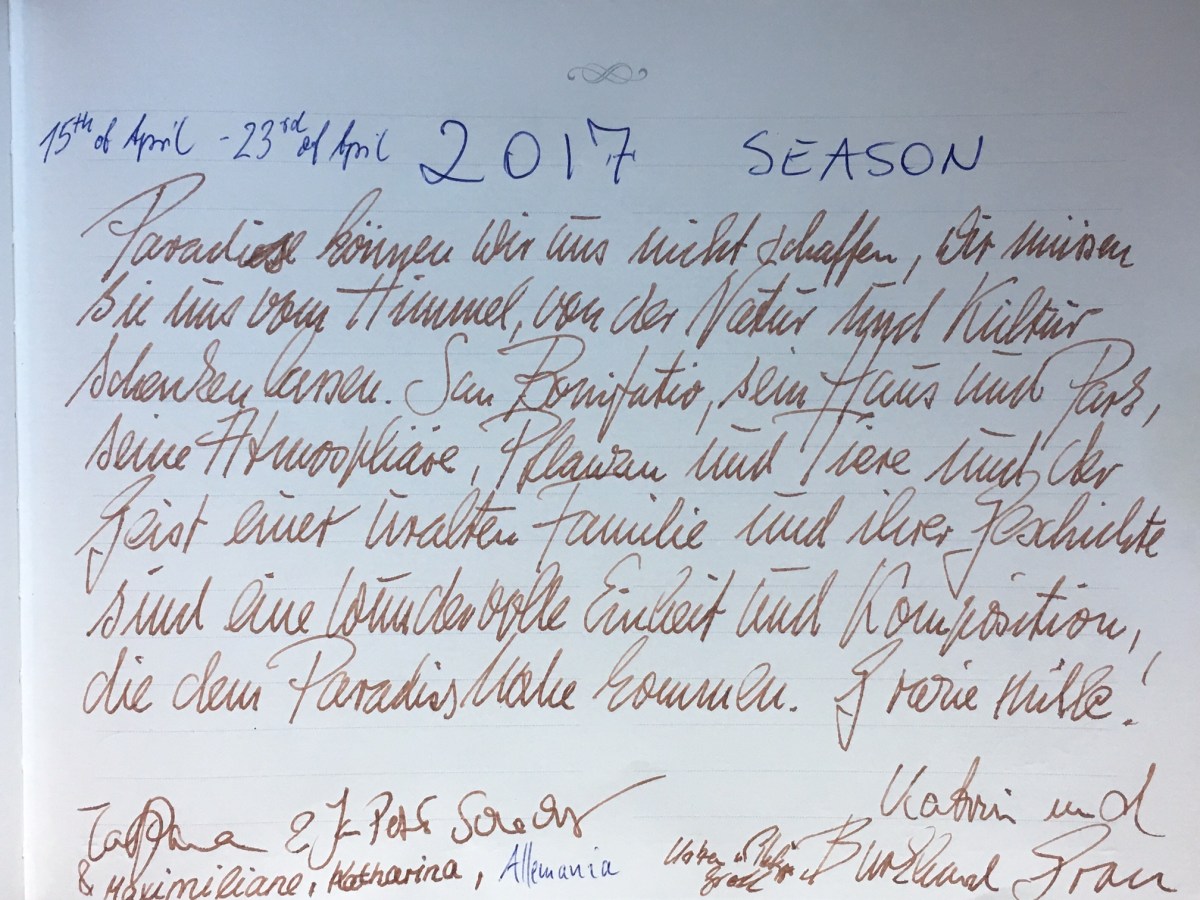 15th of April - 23rd of April 2017 SEASON
Paradiese können wir uns nicht schaffen, wir müssen
sie uns vom Himmel, von der Natur und Kultur
schenken lassen. San Bonifatio, sein Haus und Park,
seine Atmosphäre, Pflanzen und Tiere und der
Geist einer uralten Familie und ihrer Geschichte
sind eine wundervolle Einheit und Komposition,
die dem Paradies nahe kommen. Grazie mille!
Katrin und
& Maximiliane, Katharina, Allemania
Burkhard